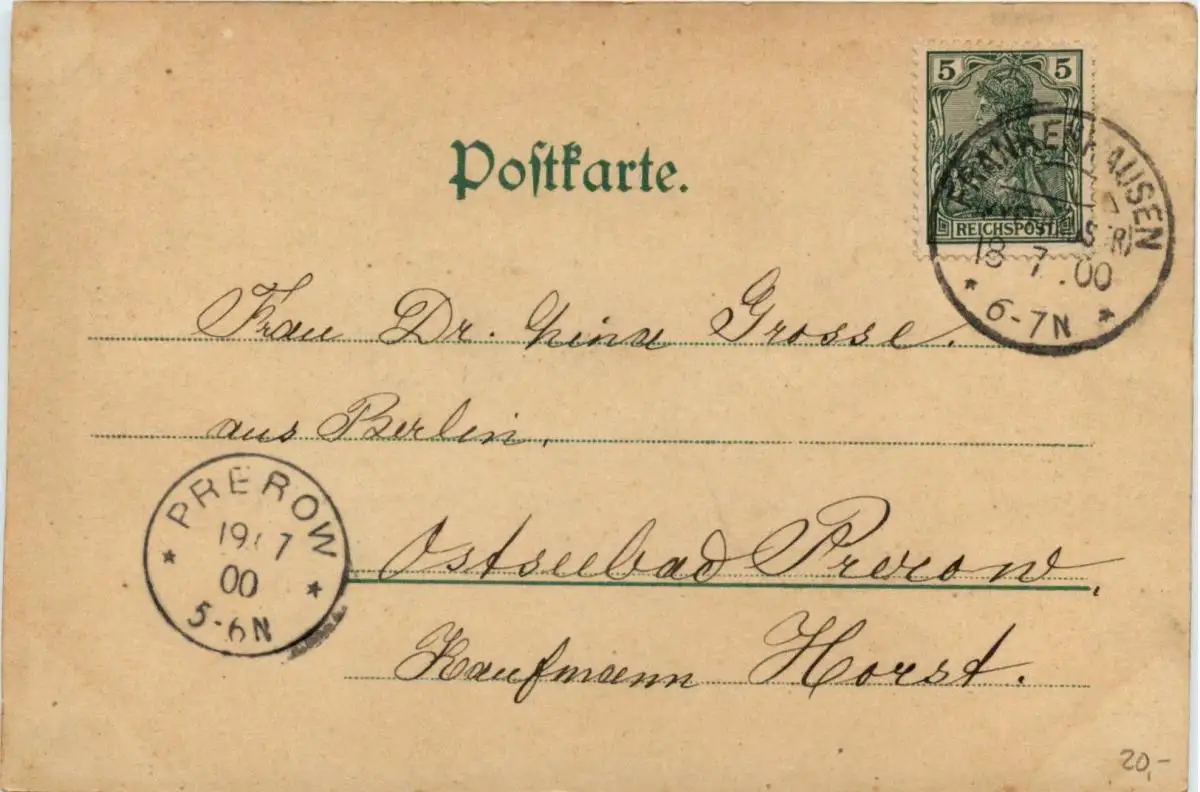 5 5
REICHSPOST
FRANKENHAUSEN
18 7 .00
6-7N
Postkarte.
Frau Dr. Lina Grosse.
aus Berlin,
PREROW
19.7
00
5-6N
Ostseebad Prerow,
Kaufmann Horst.
20,-